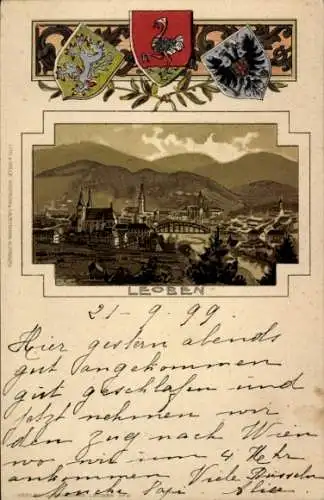 LEOBEN
21-9.99.
Hier gestern abends
gut angekommen
gut geschlafen und
jetzt nehmen wir
den Zug nach Wien
wo wir um 4 Uhr
ankommen Viele